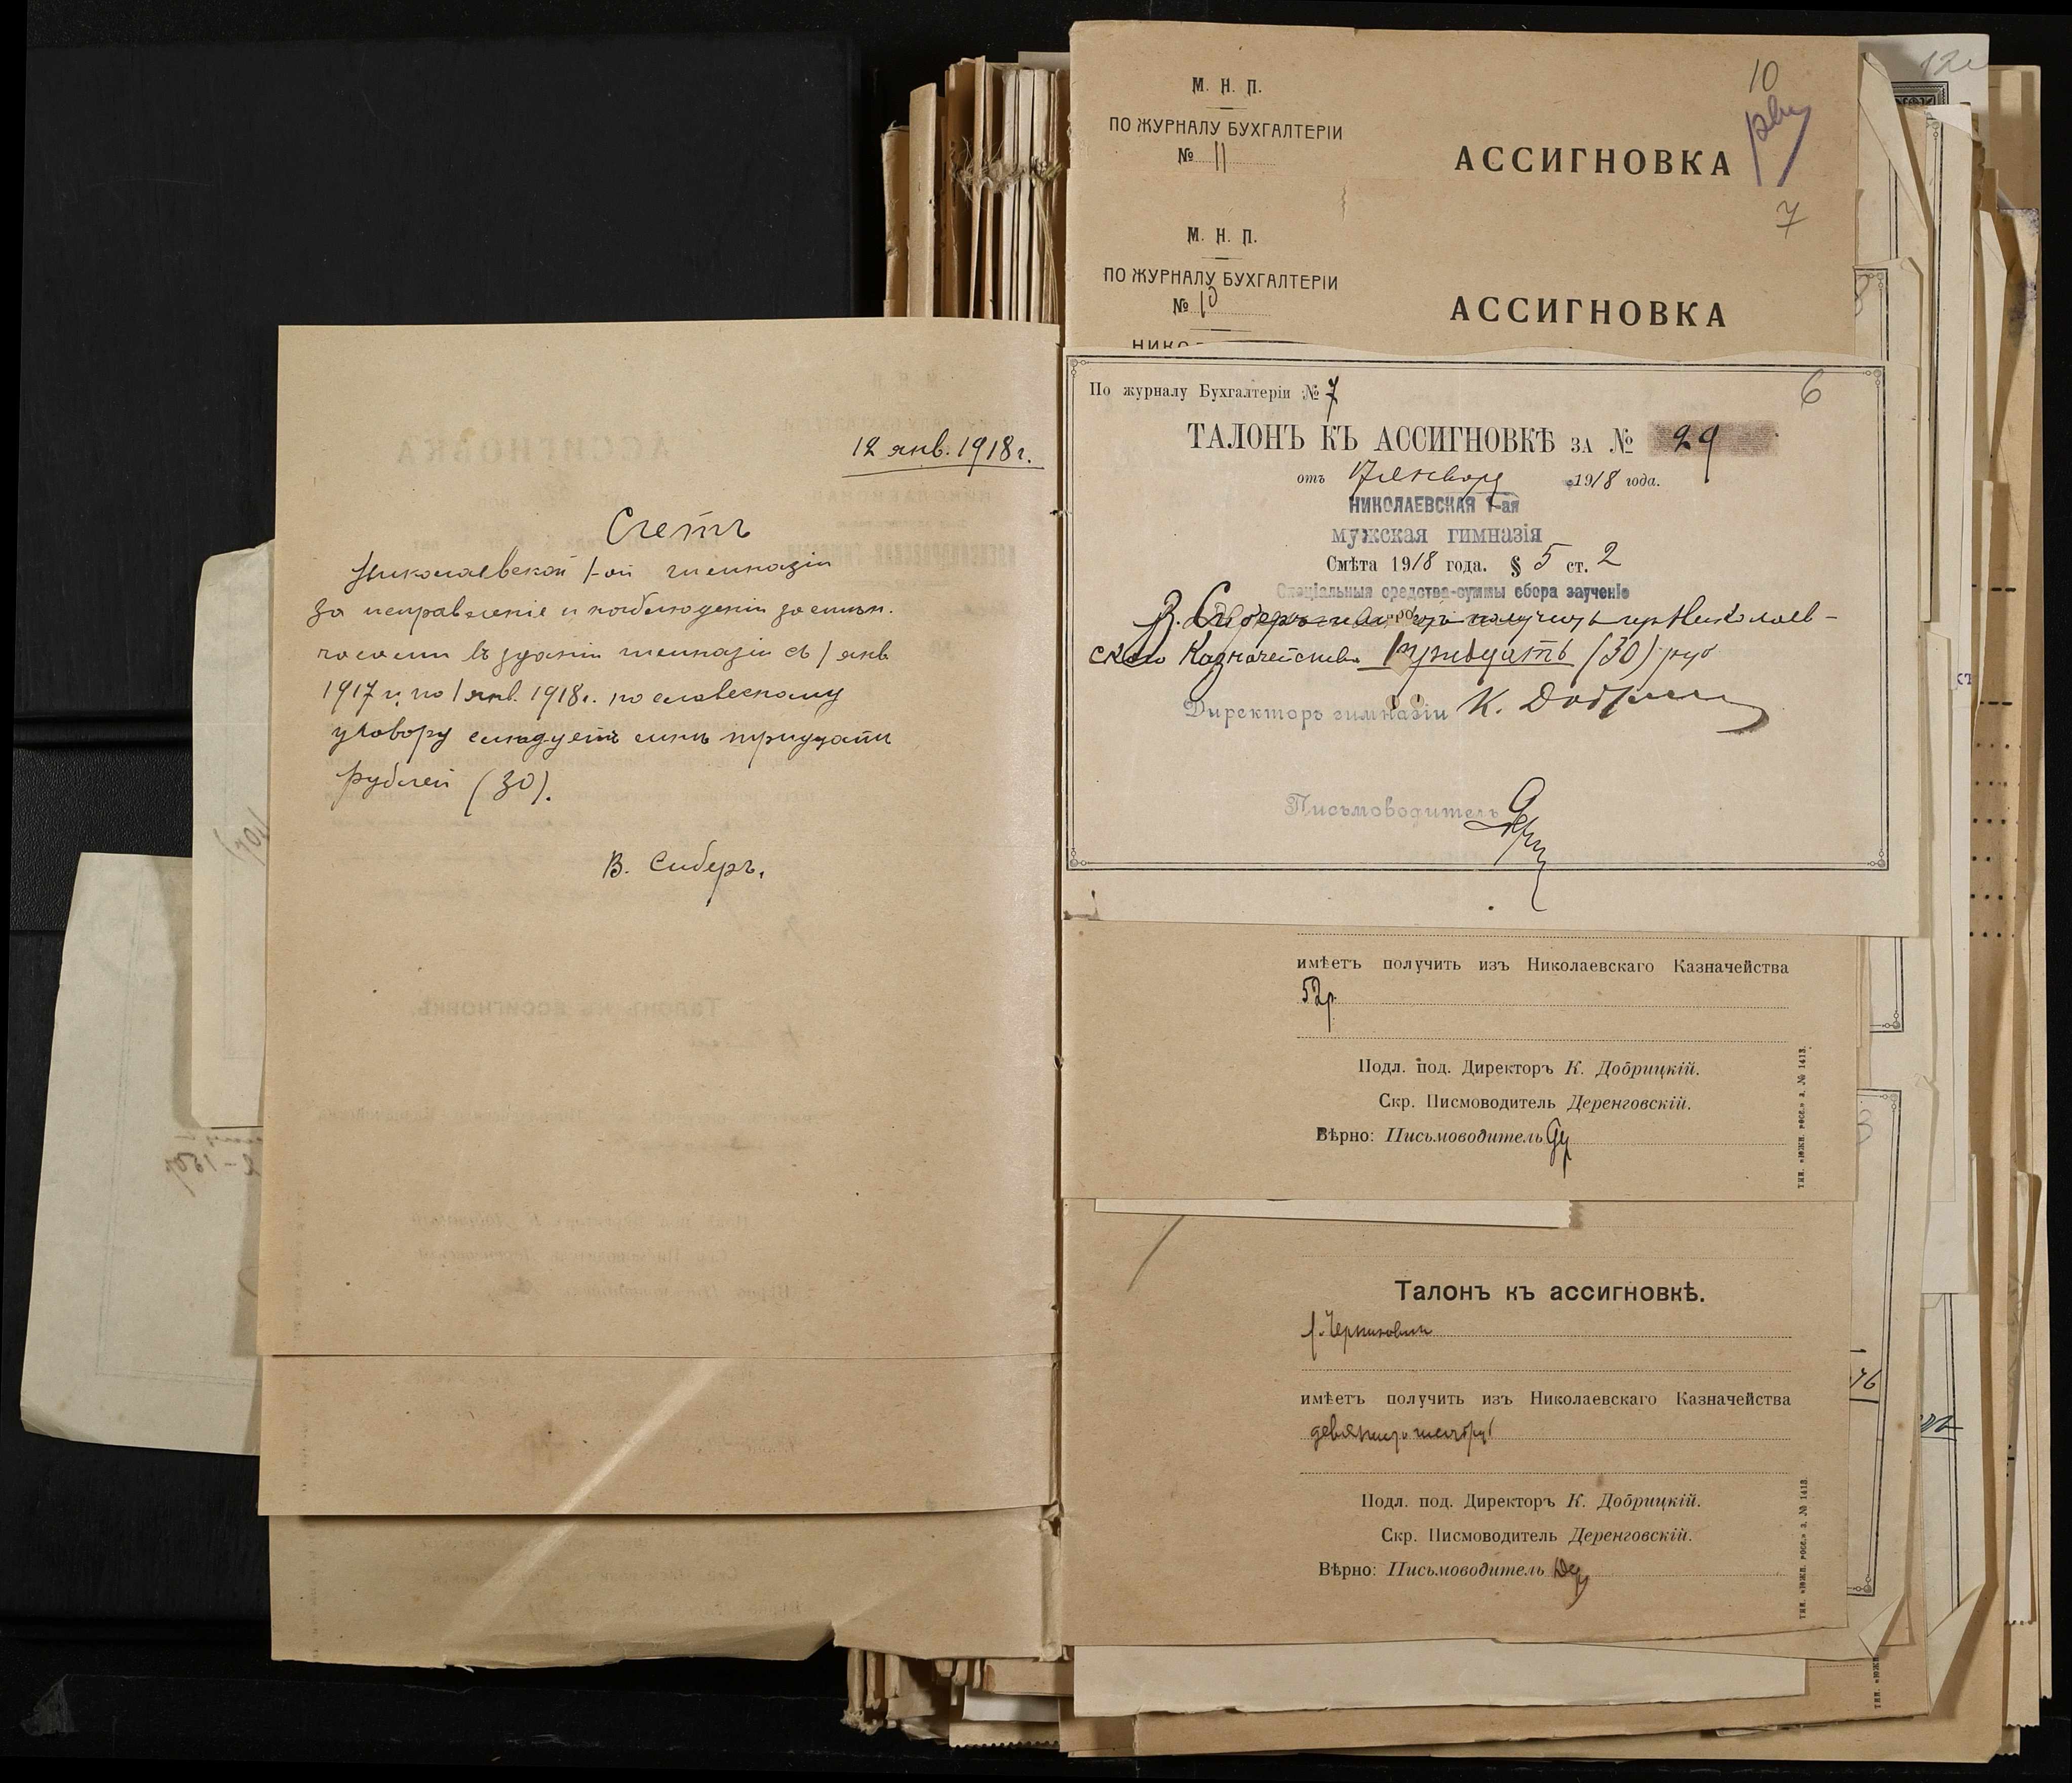 12 янв. 1918 г.
Счетъ
Николаевской 1-ой гимназіи
За исправленіе и наблюденіи за стѣн.
часами въ зданіи гимназіи съ 1 янв
1917 г. по 1 янв. 1918 г. по словесному
уговору слѣдуетъ мнѣ тридцать
рублей (30).
В. Сиберъ.
М. Н. П.
ПО ЖУРНАЛУ БУХГАЛТЕРІИ
№ 11
АССИГНОВКА
10
7
М. Н. П.
ПО ЖУРНАЛУ БУХГАЛТЕРІИ
№ 10
АССИГНОВКА
По журналу Бухгалтеріи № 7
6
ТАЛОНЪ КЪ АССИГНОВКѢ ЗА № 29
отъ 17 января 1918 года.
НИКОЛАЕВСКАЯ 1-ая
мужская гимназія
Смѣта 1918 года. § 5 ст. 2
Спеціальныя средства-суммы сбора заученіе
В. Сиберъ получить изъ Николаев-
скаго Казначейства Тридцать (30) руб
Директоръ гимназіи К. Добрицкій
Письмоводитель
имѣетъ получить изъ Николаевскаго Казначейства
52р.
Подл. под. Директоръ К. Добрицкій.
Скр. Писмоводитель Деренговскій.
Вѣрно: Письмоводитель
тип. «Южн. росс.» з. № 1413.
Талонъ къ ассигновкѣ.
имѣетъ получить изъ Николаевскаго Казначейства
Подл. под. Директоръ К. Добрицкій.
Скр. Писмоводитель Деренговскій.
Вѣрно: Письмоводитель
тип. «Южн. росс.» з. № 1413.